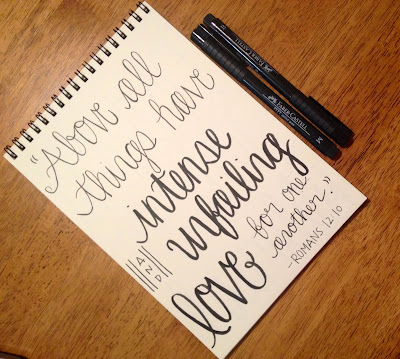 "Above all
things have
intense
||AND||
unfailing
love for one
another."
-ROMANS 12:10
FABER-CASTELL